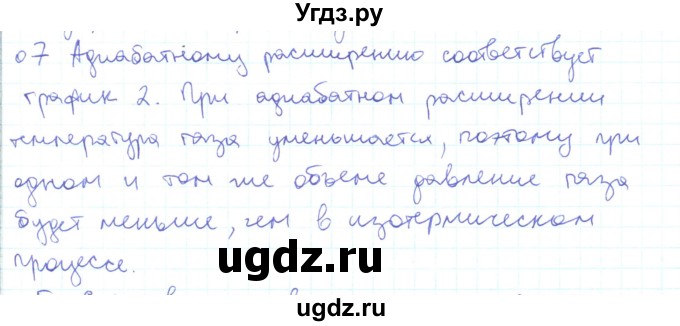 Угдз.ру
07 Адиабатному расширению соответствует
график 2. При адиабатном расширении
температура газа уменьшается, поэтому при
одном и том же объеме давление газа
будет меньше, чем в изотермическом
процессе.
Угдз.ру
ugdz.ru
ugdz.ru